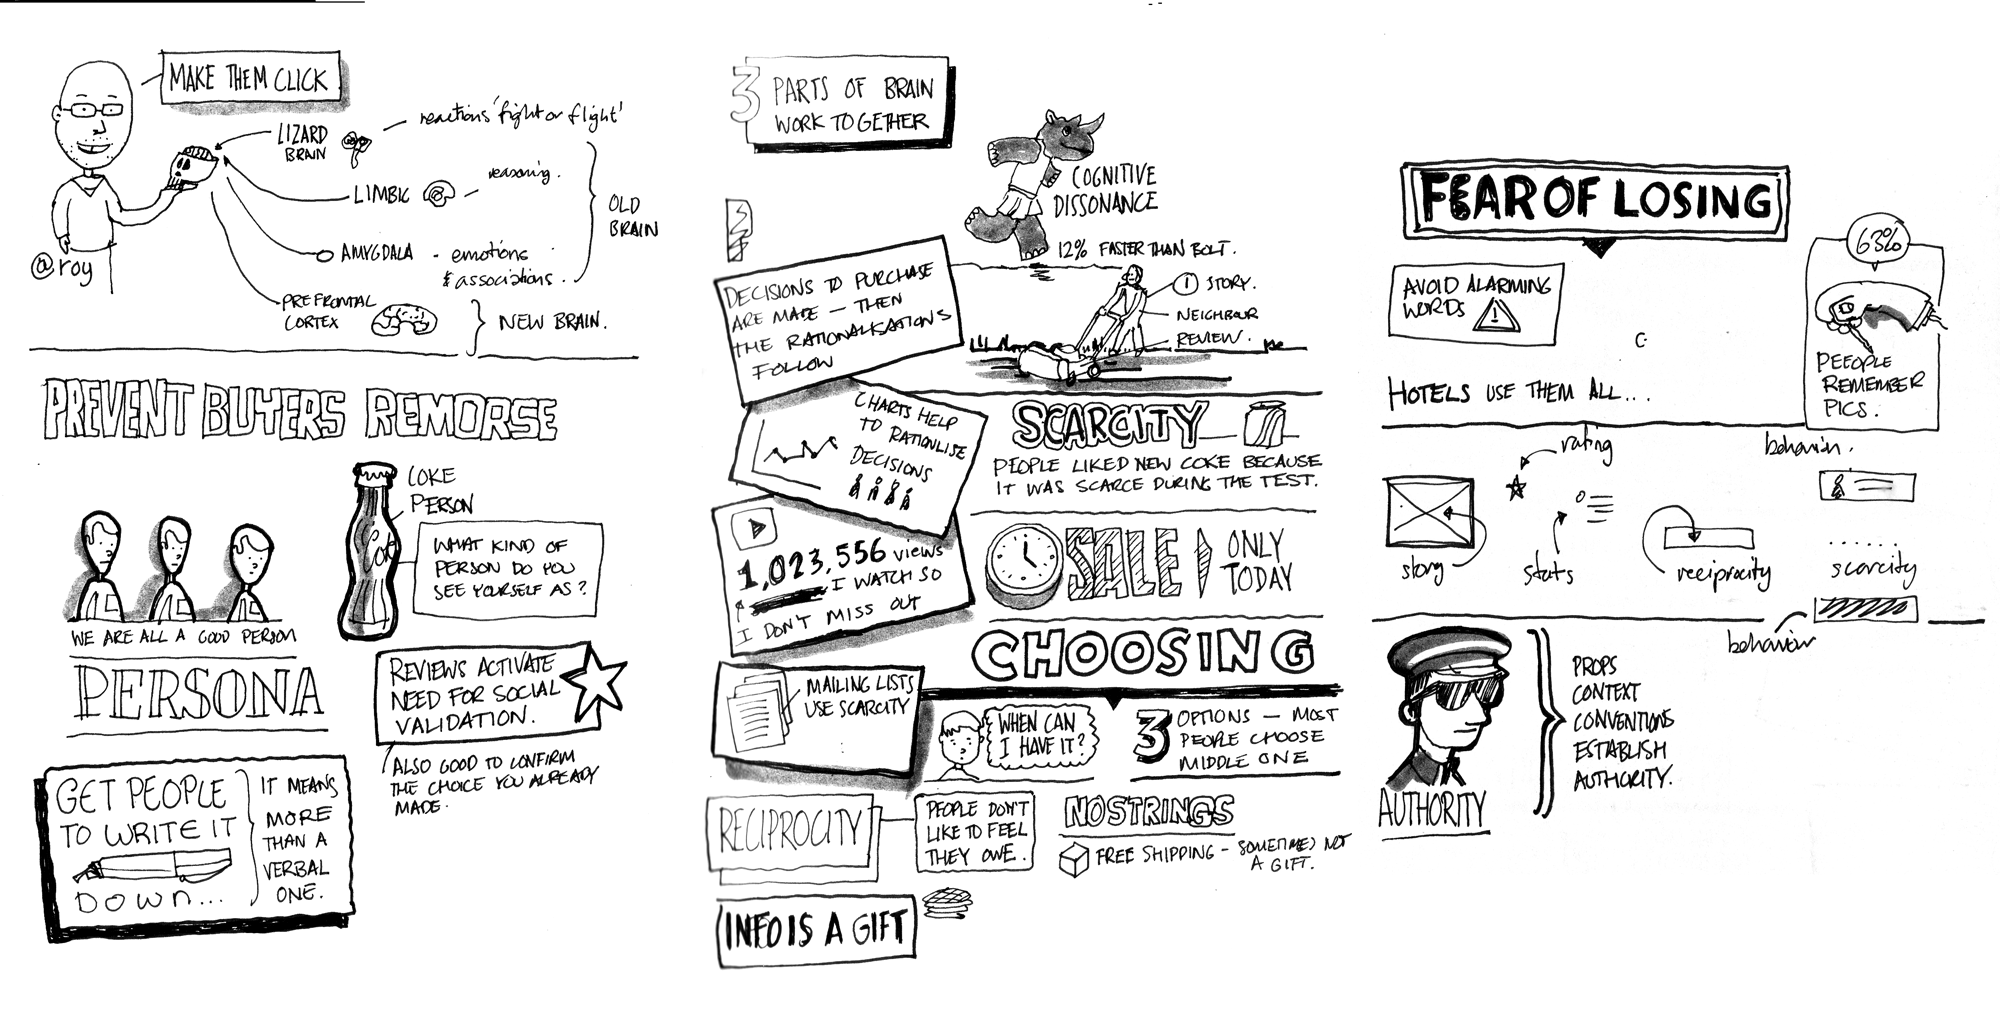 MAKE THEM CLICK
@roy
LIZARD
BRAIN
reactions 'fight or flight'
LIMBIC
reasoning.
AMYGDALA - emotions
& associations.
OLD
BRAIN
PREFRONTAL
CORTEX
NEW BRAIN.
PREVENT BUYERS REMORSE
WE ARE ALL A GOOD PERSON
PERSONA
COKE
PERSON
Coke
WHAT KIND OF
PERSON DO YOU
SEE YOURSELF AS?
REVIEWS ACTIVATE
NEED FOR SOCIAL
VALIDATION.
ALSO GOOD TO CONFIRM
THE CHOICE YOU ALREADY
MADE.
GET PEOPLE
TO WRITE IT
DOWN...
IT MEANS
MORE
THAN A
VERBAL
ONE.
3 PARTS OF BRAIN
WORK TOGETHER
COGNITIVE
DISSONANCE
12% FASTER THAN BOLT.
DECISIONS TO PURCHASE
ARE MADE — THEN
THE RATIONALISATIONS
FOLLOW
1 STORY.
NEIGHBOUR
REVIEW.
CHARTS HELP
TO RATIONLISE
DECISIONS
SCARCITY
PEOPLE LIKED NEW COKE BECAUSE
IT WAS SCARCE DURING THE TEST.
1,023,556 views
I WATCH SO
I DON'T MISS OUT
SALE! ONLY
TODAY
CHOOSING
MAILING LISTS
USE SCARCITY
WHEN CAN
I HAVE IT?
3 OPTIONS — MOST
PEOPLE CHOOSE
MIDDLE ONE
RECIPROCITY
PEOPLE DON'T
LIKE TO FEEL
THEY OWE.
NO STRINGS
FREE SHIPPING - SOMETIMES NOT
A GIFT.
INFO IS A GIFT
FEAR OF LOSING
AVOID ALARMING
WORDS !
HOTELS USE THEM ALL...
63%
PEEOPLE
REMEMBER
PICS.
rating
behavior.
story
stats
reciprocity
scarcity
behavior
AUTHORITY
PROPS
CONTEXT
CONVENTIONS
ESTABLISH
AUTHORITY.